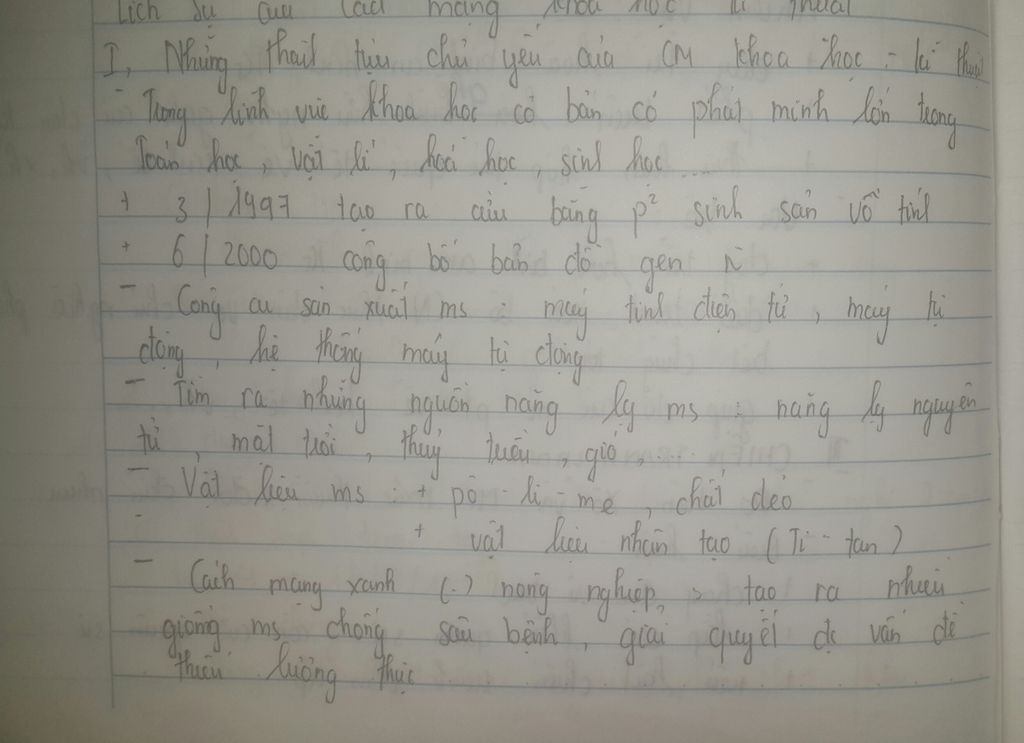 Lịch sử của cách mạng khoa học kĩ thuật
I, Những thành tựu chủ yếu của CM khoa học - kĩ thuật
- Trong lĩnh vực khoa học cơ bản có phát minh lớn trong
Toán học, vật lí, hoá học, sinh học.
+ 3 | 1997 tạo ra cừu bằng p² sinh sản vô tính
+ 6 | 2000 công bố bản đồ gen
- Công cụ sản xuất ms : máy tính điện tử, máy tự
động, hệ thống máy tự động
- Tìm ra những nguồn năng lg ms : năng lg nguyên
tử, mặt trời, thuỷ triều, gió,
- Vật liệu ms : + pô - li - me, chất dẻo
+ vật liệu nhân tạo (Ti - tan)
- Cách mạng xanh (.) nông nghiệp, > tạo ra nhiều
giống ms chống sâu bệnh, giải quyết đc vấn đề
thiếu lương thực